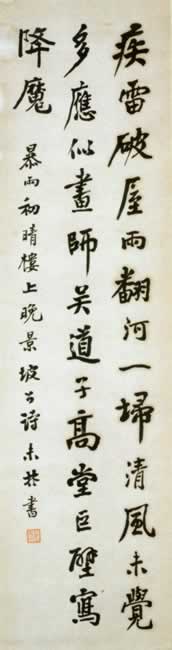 疾雷破屋雨翻河一埽清風未覺
多應似畫師吴道子高堂巨壁寫
降魔
暴雨初晴樓上晚景坡公詩未於書